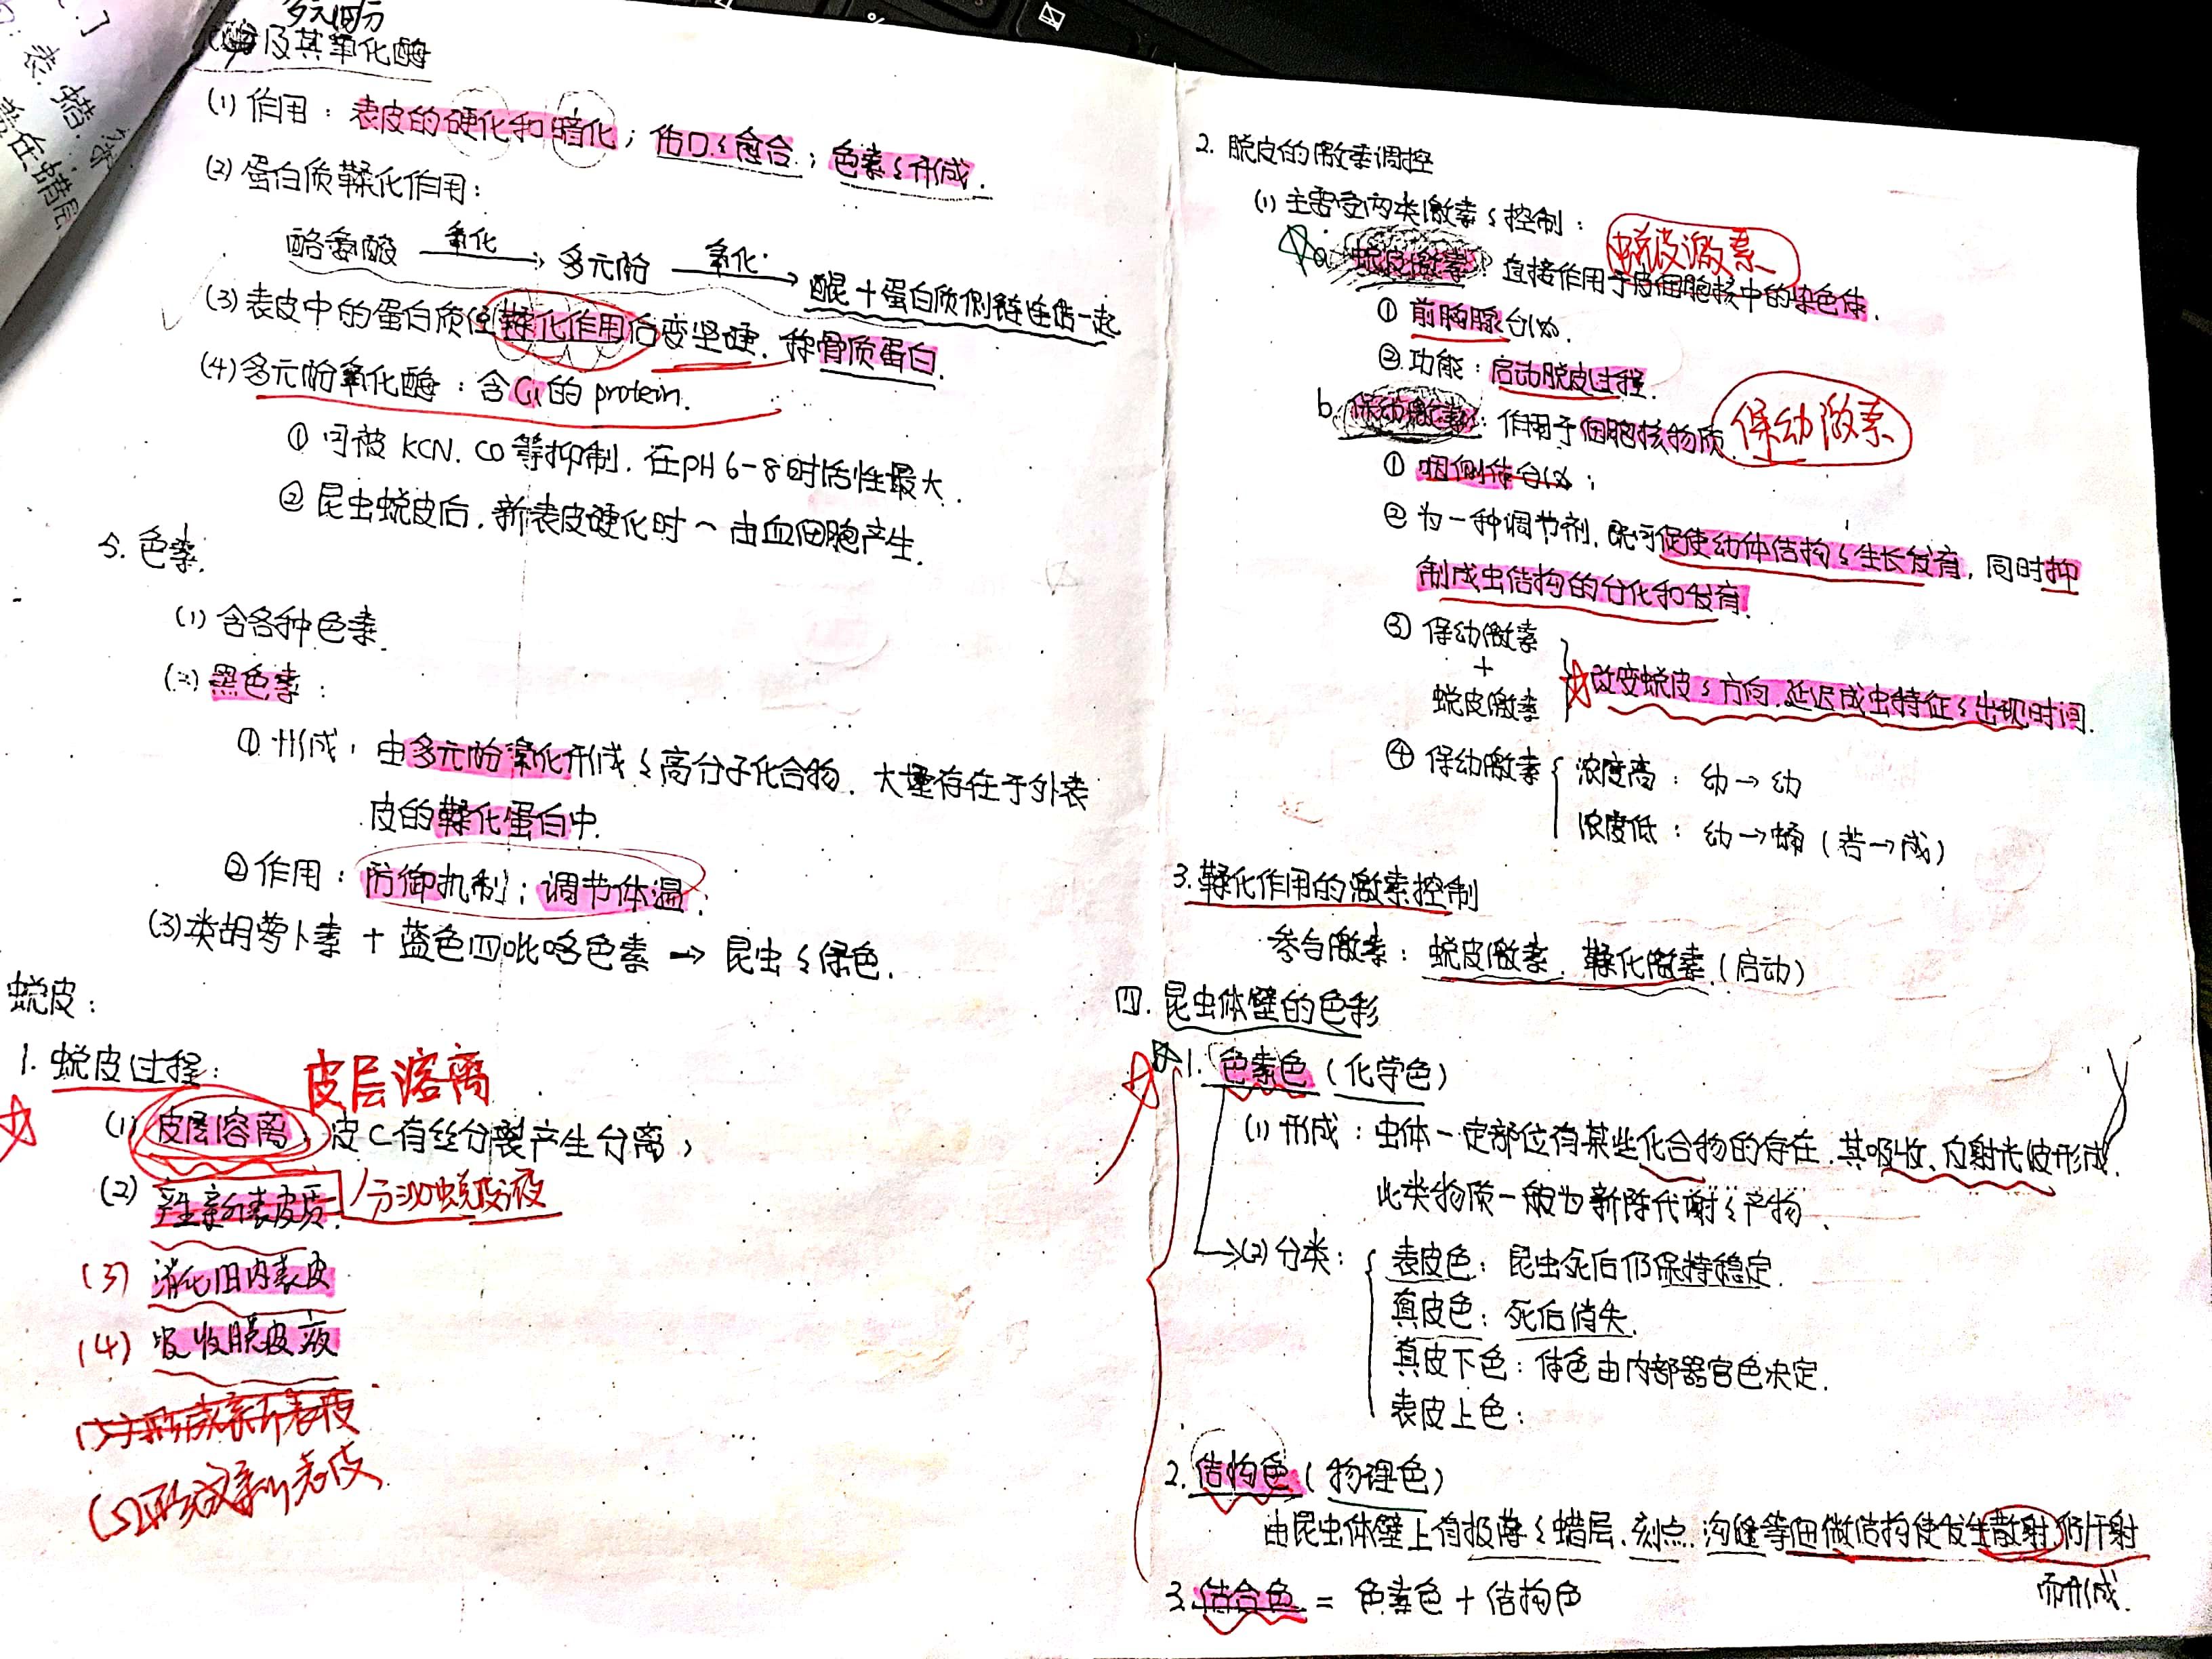 多元酚
及其氧化酶
(1) 作用：表皮的硬化和暗化；伤口之愈合；色素之形成.
(2) 蛋白质鞣化作用：
酪氨酸 氧化→ 多元酚 氧化→ 醌+蛋白质侧链连结一起
(3) 表皮中的蛋白质经鞣化作用后变坚硬. 称骨质蛋白.
(4) 多元酚氧化酶：含Cu的 protein.
① 可被 KCN. CO 等抑制. 在pH 6-8时活性最大.
② 昆虫蜕皮后. 新表皮硬化时~ 由血细胞产生.
5. 色素.
(1) 含各种色素.
(2) 黑色素：
① 形成：由多元酚氧化形成之高分子化合物. 大量存在于外表
皮的鞣化蛋白中.
② 作用：防御机制；调节体温.
(3) 类胡萝卜素 + 蓝色四吡咯色素 → 昆虫之绿色.
蜕皮：
1. 蜕皮过程：
皮层溶离
(1) 皮层溶离：皮C有丝分裂产生分离；
(2) 产生新表皮质. /分泌蜕皮液
(3) 消化旧内表皮
(4) 吸收脱皮液
(5) 形成新表皮
(5) 形成新表皮
2. 脱皮的激素调控
(1) 主要受两类激素之控制：
蜕皮激素
a. 蜕皮激素：直接作用于皮细胞核中的染色体.
① 前胸腺分泌.
② 功能：启动脱皮过程.
b. 保幼激素：作用于细胞核物质. 保幼激素
① 咽侧体分泌；
② 为一种调节剂. 既可促使幼体结构之生长发育, 同时抑
制成虫结构的分化和发育.
③ 保幼激素
+
蜕皮激素
改变蜕皮之方向. 延迟成虫特征之出现时间.
④ 保幼激素 { 浓度高：幼→幼
浓度低：幼→蛹 (若→成)
3. 鞣化作用的激素控制
参与激素：蜕皮激素. 鞣化激素 (启动)
四. 昆虫体壁的色彩
1. 色素色 (化学色)
(1) 形成：虫体一定部位有某些化合物的存在. 其吸收、反射光波形成.
此类物质一般为新陈代谢之产物.
→(2) 分类：{ 表皮色：昆虫死后仍保持稳定.
真皮色：死后消失.
真皮下色：体色由内部器官色决定.
表皮上色：
2. 结构色 (物理色)
由昆虫体壁上有极薄之蜡层. 刻点. 沟缝等细微结构使发生散射 衍射
而形成.
3. 结合色 = 色素色 + 结构色